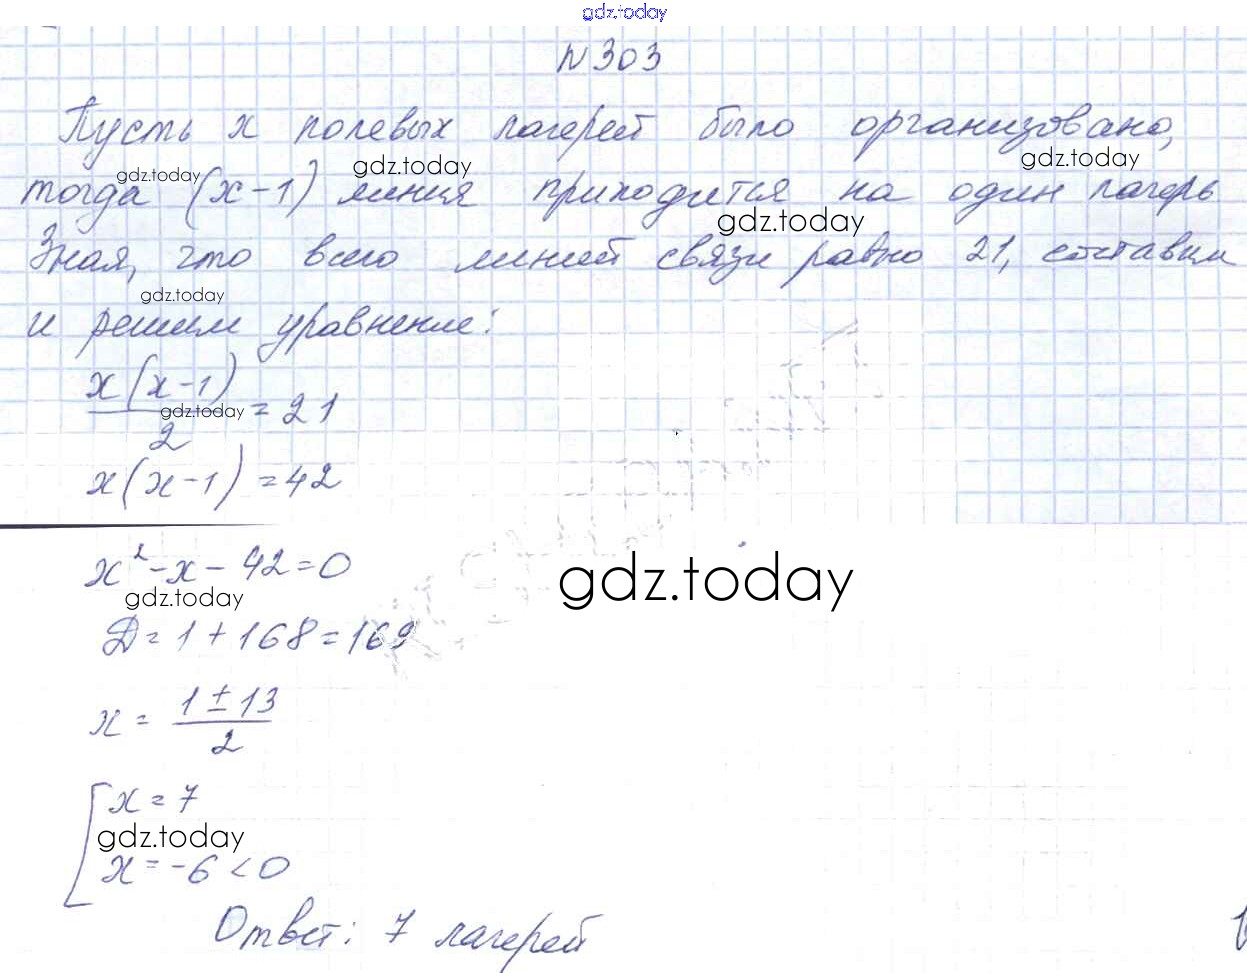 gdz.today
N 303
Пусть x полевых лагерей было организовано,
gdz.today gdz.today gdz.today
тогда (x-1) линия приходится на один лагерь.
gdz.today
Зная, что всего линий связи равно 21, составим
gdz.today
и решим уравнение:
x(x-1)/2 = 21
gdz.today
x(x-1) = 42
x²-x-42=0
gdz.today
gdz.today
D=1+168=169
x = (1±13)/2
x=7
gdz.today
x=-6<0
Ответ: 7 лагерей